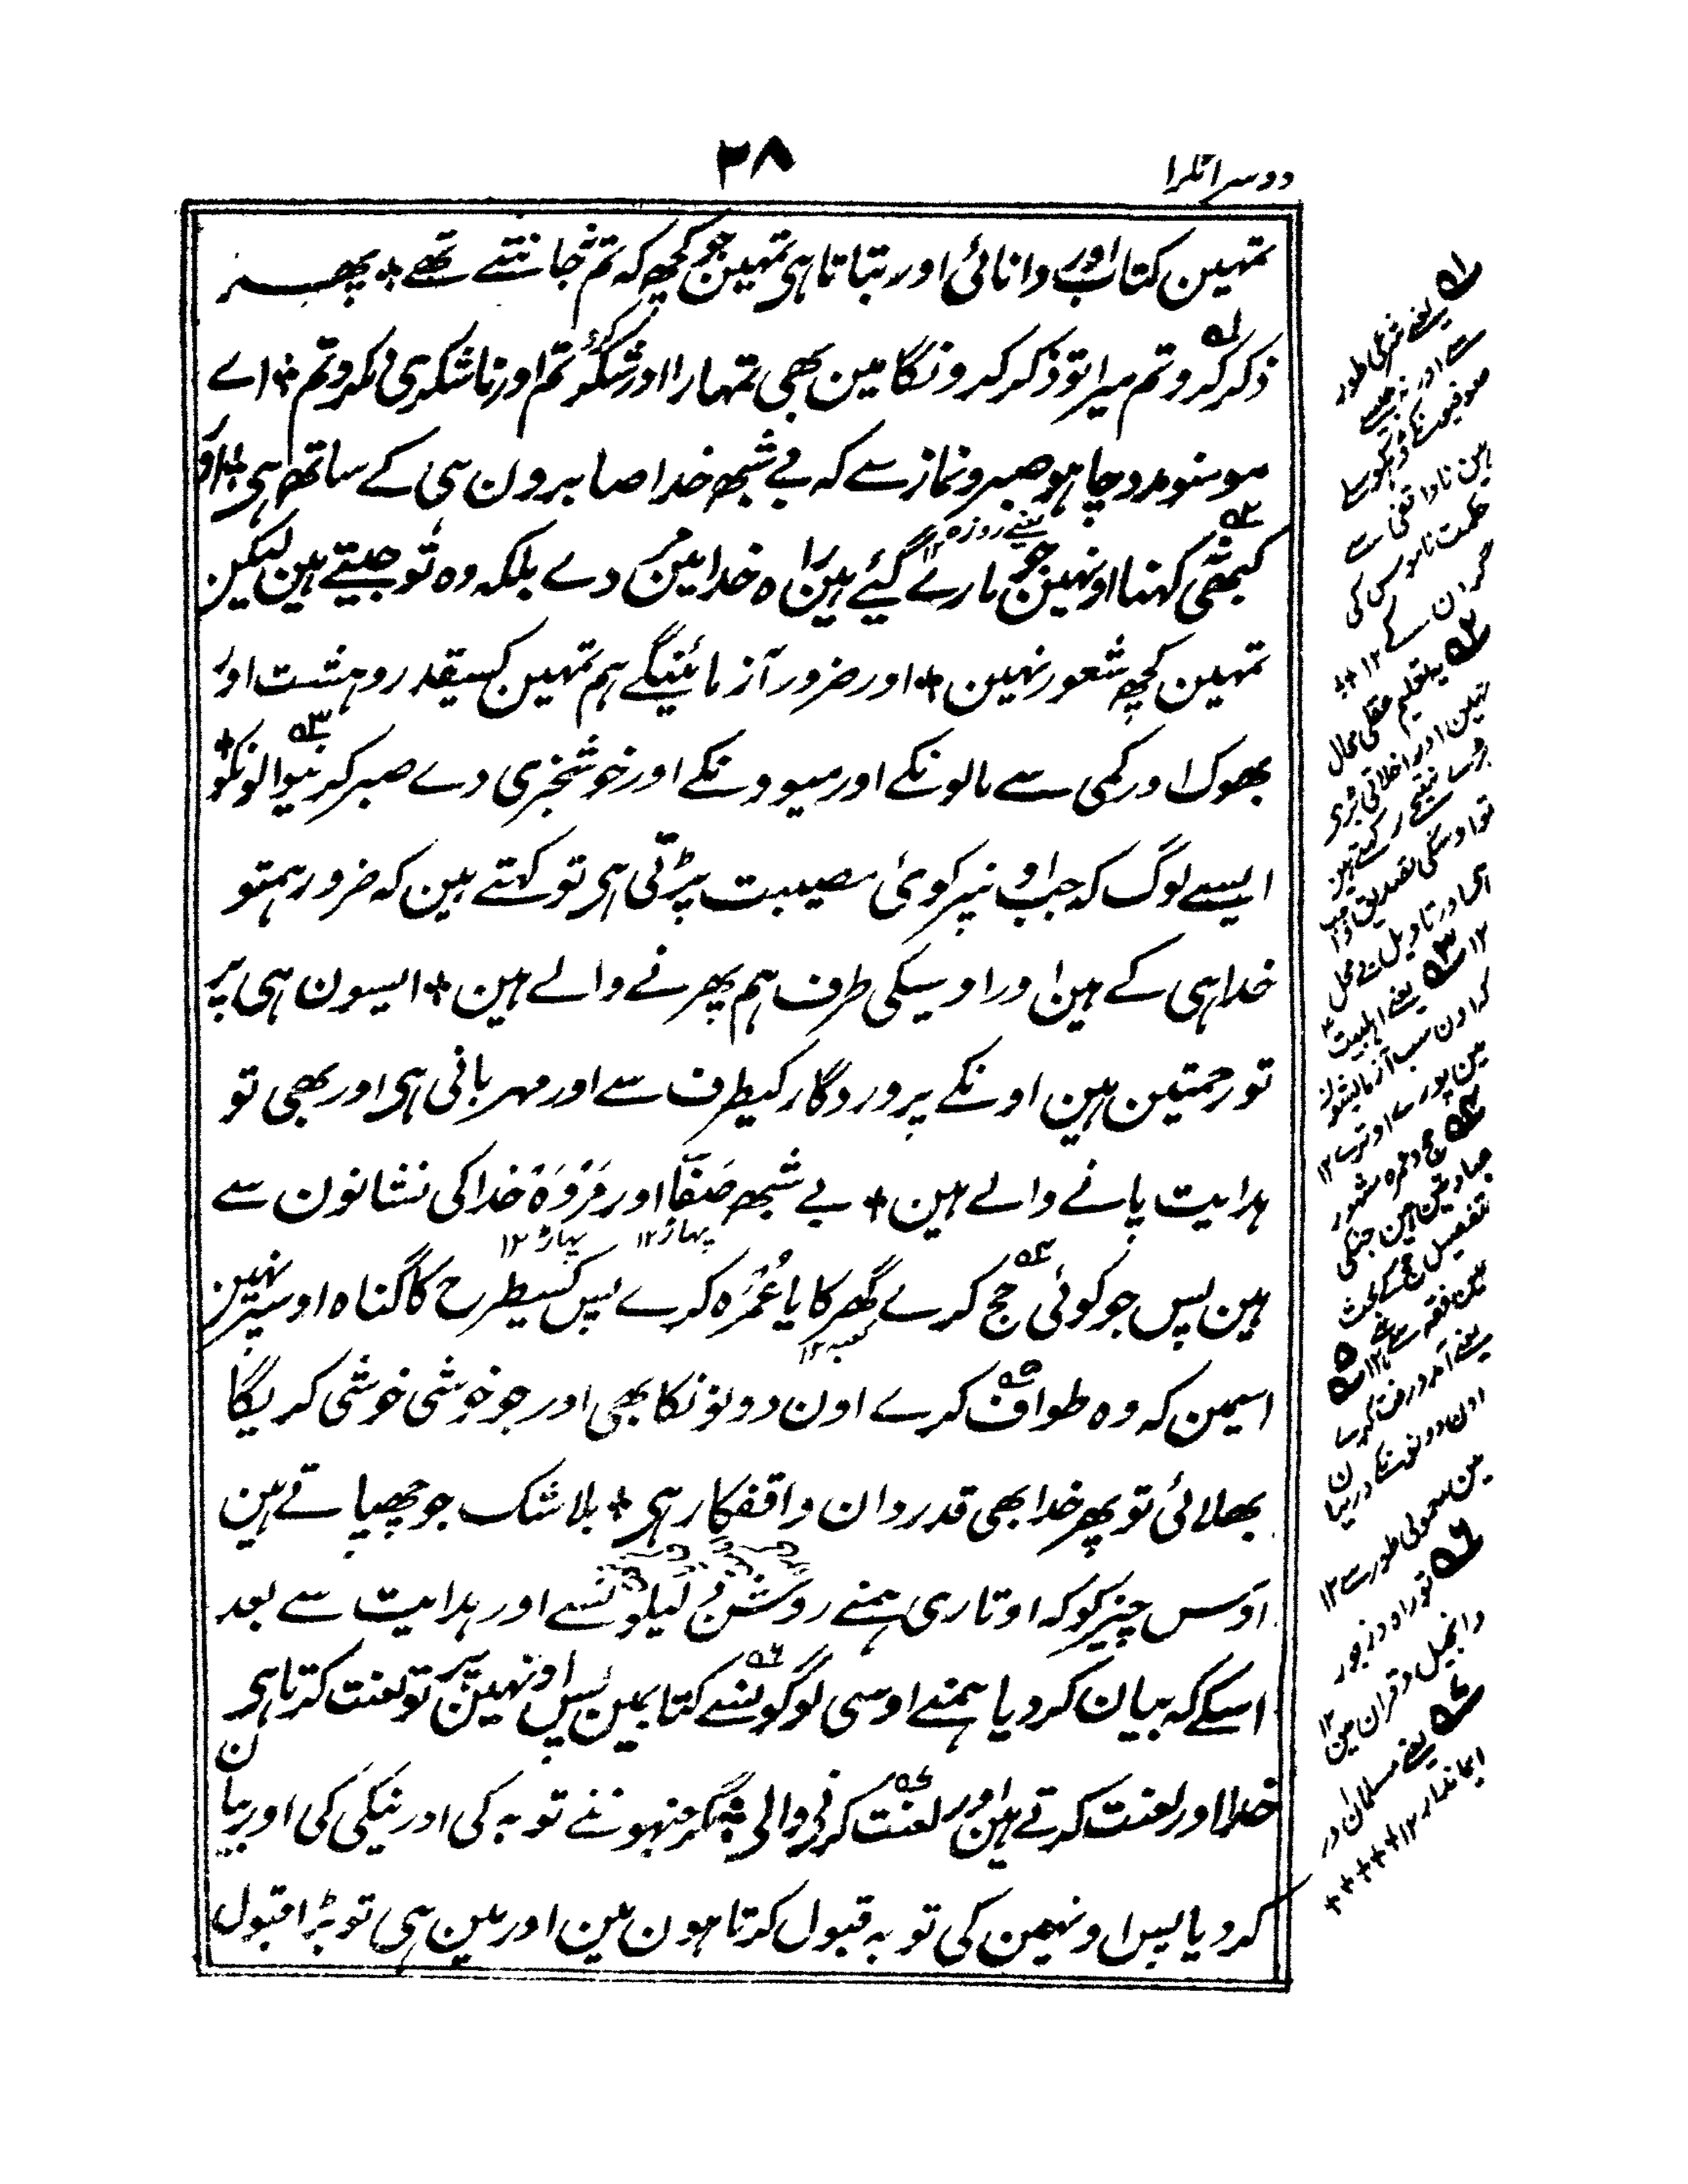 دوسرا ٹکڑا
۲۸
تمہین کتاب اور دانائی اور بتاتا ہی تمہین جو کچھ کہ تم نجانتے تھے + پھر
ذکر کرو تم میرا تو ذکر کرونگا مین بھی تمہارا اور شکر کرو تم اور ناشکری نکرو تم + اے
مومنو مدد چاہو صبر و نماز سے کہ بے شبھ خدا صابرون ہی کے ساتھ ہی + اور
یعنے روزہ ۱۲
کبھی نکہنا اونہین جو مارے گئے ہین راہ خدا مین مردے بلکہ وہ تو جیتے ہین لیکن
تمہین کچھ شعور نہین + اور ضرور آزمائینگے ہم تمہین کسیقدر دہشت اور
بھوک اور کمی سے مالونکے اور میوونکے اور خوشخبری دے صبر کرنیوالونکو +
ایسے لوگ کہ جب اونپر کوئی مصیبت پڑتی ہی تو کہتے ہین کہ ضرور ہمتو
خدا ہی کے ہین اور اوسیکی طرف ہم پھرنے والے ہین + ایسون ہی پر
تو رحمتین ہین اونکے پروردگار کیطرف سے اور مہربانی ہی اور بھی تو
ہدایت پانے والے ہین + بے شبھ صَفَا اور مَرْوَہ خدا کی نشانون سے
پہاڑ ۱۲ پہاڑ ۱۲
ہین پس جو کوئی حج کرے گھر کا یا عُمرَہ کرے پس کسیطرح کا گناہ اوسپر نہین
کعبہ ۱۲
اسمین کہ وہ طواف کرے اون دونونکا بھی اور جو خوشی خوشی کریگا
بھلائی تو پھر خدا بھی قدردان واقفکار ہی + بلا شک جو چھپاتے ہین
اوس چیز کو کہ اوتاری ہمنے روشن دلیلونسے اور ہدایت سے بعد
اسکے کہ بیان کر دیا ہمنے اوسی لوگونسے کتابمین پس اونہین پر تو لعنت کرتا ہی
خدا اور لعنت کرتے ہین اور لعنت کرنیوالی + مگر جنہونے توبہ کی اور نیکی کی اور بیان
کر دیا پس اونہین کی توبہ قبول کرتا ہون مین اور مین ہی تو بڑا قبول
یعنے شرعی طور
سے اور نہ جیسے
صوفیونکے
ہین ناواقفی سے
۱۲ ++
یہ تعلیم عقلی محال
نہین اور اخلاقی بڑی
نتیجے رکھتے ہین
تو اوسکی تصدیق واجب
ہی اور تاویل بے محل +
۱۲ یعنے اہلبیت
کہ اون سب آزمایشون
مین پورے اوترے ۱۲
حج و عمرہ مشہور
عبادتین ہین جنکی
تفصیل
مین فقہ سے ہی ۱۲
یعنے آمدورفت کرے
اون دونونکے درمیان
مین معمولی طور سے ۱۲
توراہ و زبور
و انجیل و قران مین ۱۲
یعنے مسلمان اور
ایماندار ۱۲ ++++